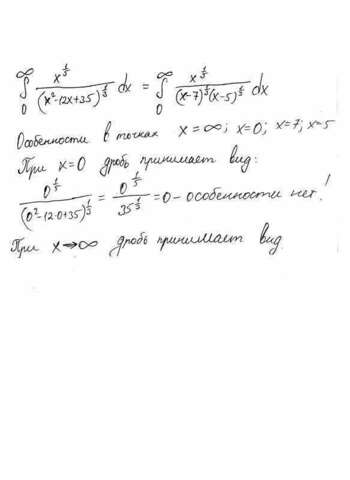 ∞∫0 x^(1/5) / (x²-12x+35)^(1/3) dx = ∞∫0 x^(1/5) / ((x-7)^(1/3)(x-5)^(1/3)) dx
Особенности в точках x=∞; x=0; x=7; x=5
При x=0 дробь принимает вид:
0^(1/5) / (0²-12·0+35)^(1/3) = 0^(1/5) / 35^(1/3) = 0 - особенности нет!
При x→∞ дробь принимает вид